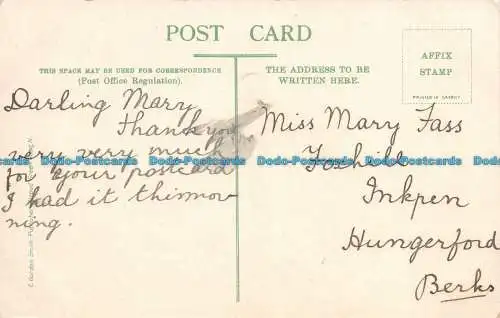 POST CARD
THIS SPACE MAY BE USED FOR CORRESPONDENCE
(Post Office Regulation).
THE ADDRESS TO BE
WRITTEN HERE.
AFFIX
STAMP
Darling Mary
Thank you
very very much
for your postcard
I had it thismor
ning.
Miss Mary Fass
Foxhill
Inkpen
Hungerford
Berks
Dodo-Postcards Dodo-Postcards Dodo-Postcards Dodo-Postcards Dodo-Postcards